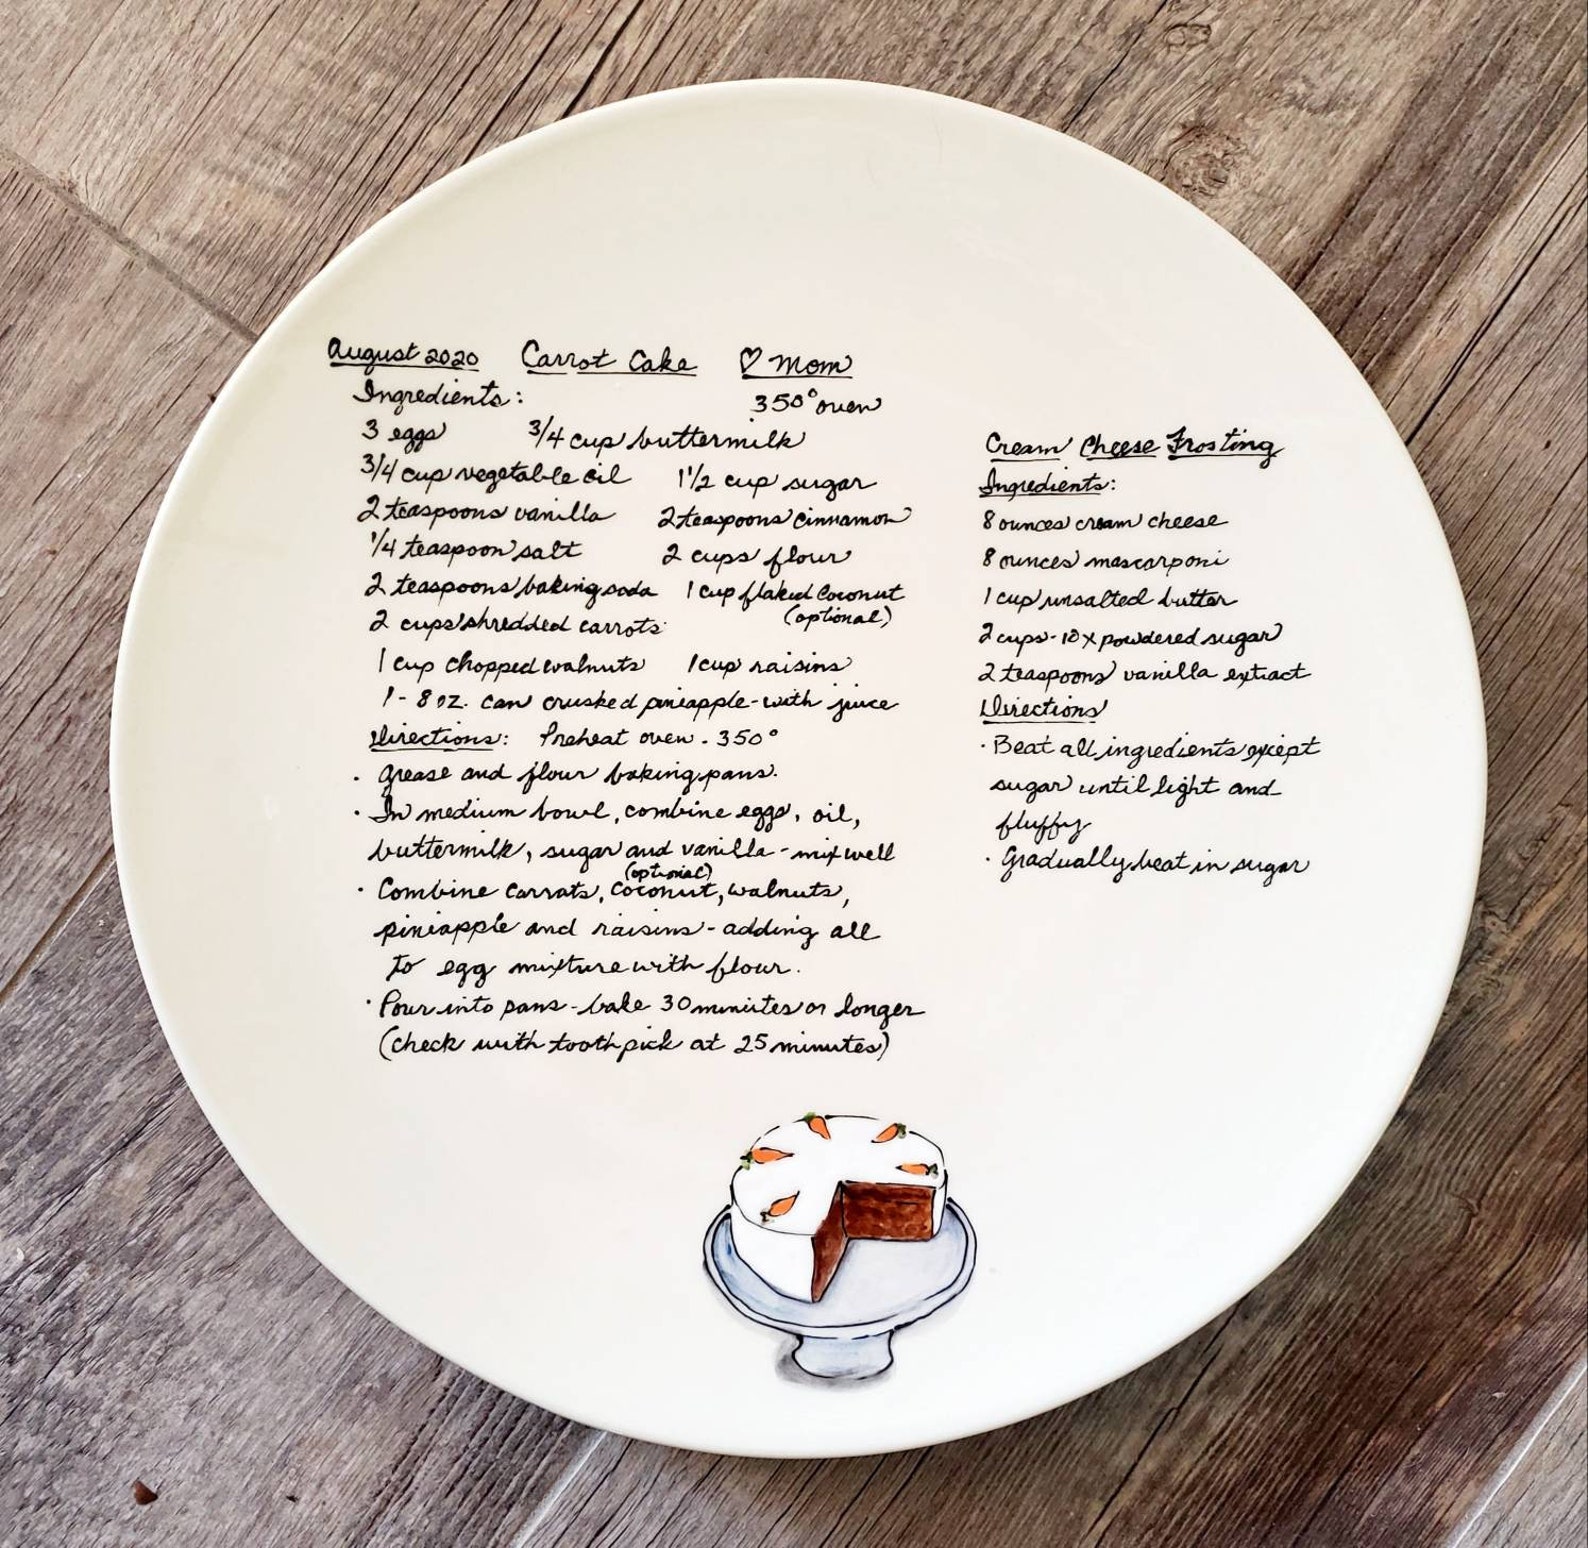 August 2020 Carrot Cake ♡ Mom
Ingredients: 350° oven
3 eggs 3/4 cup buttermilk
3/4 cup vegetable oil 1 1/2 cup sugar
2 teaspoons vanilla 2 teaspoons cinnamon
1/4 teaspoon salt 2 cups flour
2 teaspoons baking soda 1 cup flaked coconut
(optional)
2 cups shredded carrots
1 cup chopped walnuts 1 cup raisins
1 - 8 oz. can crushed pineapple - with juice
Directions: Preheat oven - 350°
· Grease and flour baking pans.
· In medium bowl, combine eggs, oil,
buttermilk, sugar and vanilla - mix well
(optional)
· Combine carrots, coconut, walnuts,
pineapple and raisins - adding all
to egg mixture with flour.
· Pour into pans - bake 30 minutes or longer
(check with toothpick at 25 minutes)
Cream Cheese Frosting
Ingredients:
8 ounces cream cheese
8 ounces mascarponi
1 cup unsalted butter
2 cups - 10x powdered sugar
2 teaspoons vanilla extract
Directions
· Beat all ingredients except
sugar until light and
fluffy
· Gradually beat in sugar